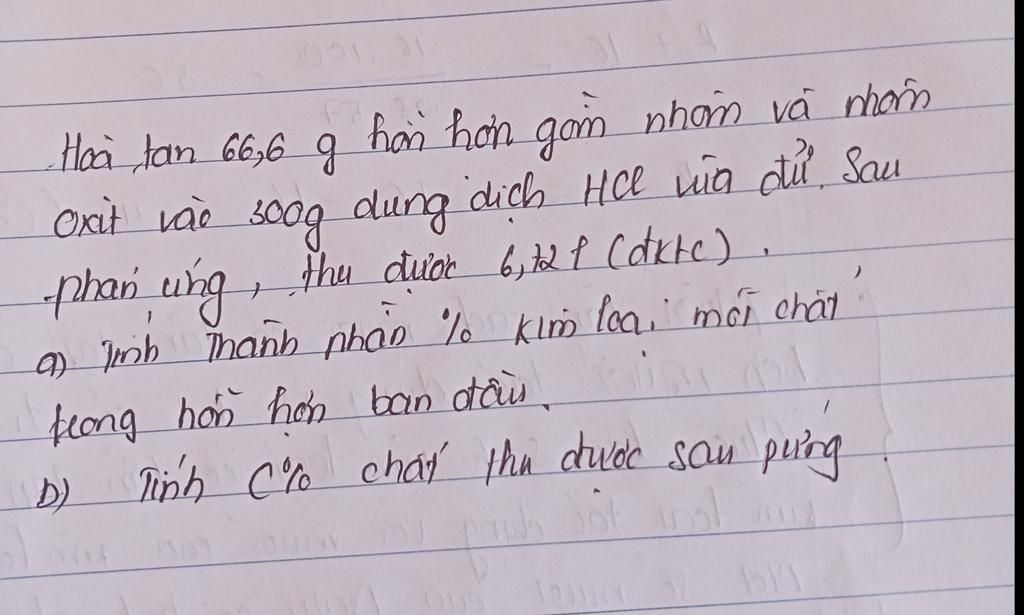 Hoà tan 66,6 g hỗn hợp gồm nhôm và nhôm
oxit vào 300g dung dịch HCl vừa đủ. Sau
phản ứng, thu được 6,72 l (đktc).
a) Tính Thành phần % kim loại mỗi chất
trong hỗn hợp ban đầu.
b) Tính C% chất thu được sau pứng